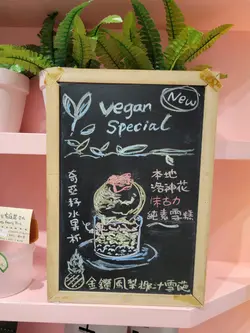 Vegan
Special
New
奇亞籽水果杯
本地
洛神花
朱古力
純素雪糕
金鑽鳳梨